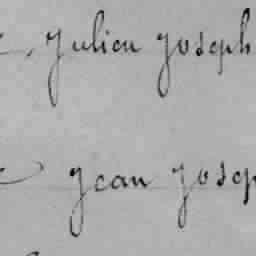 Julien Joseph
Jean Josep